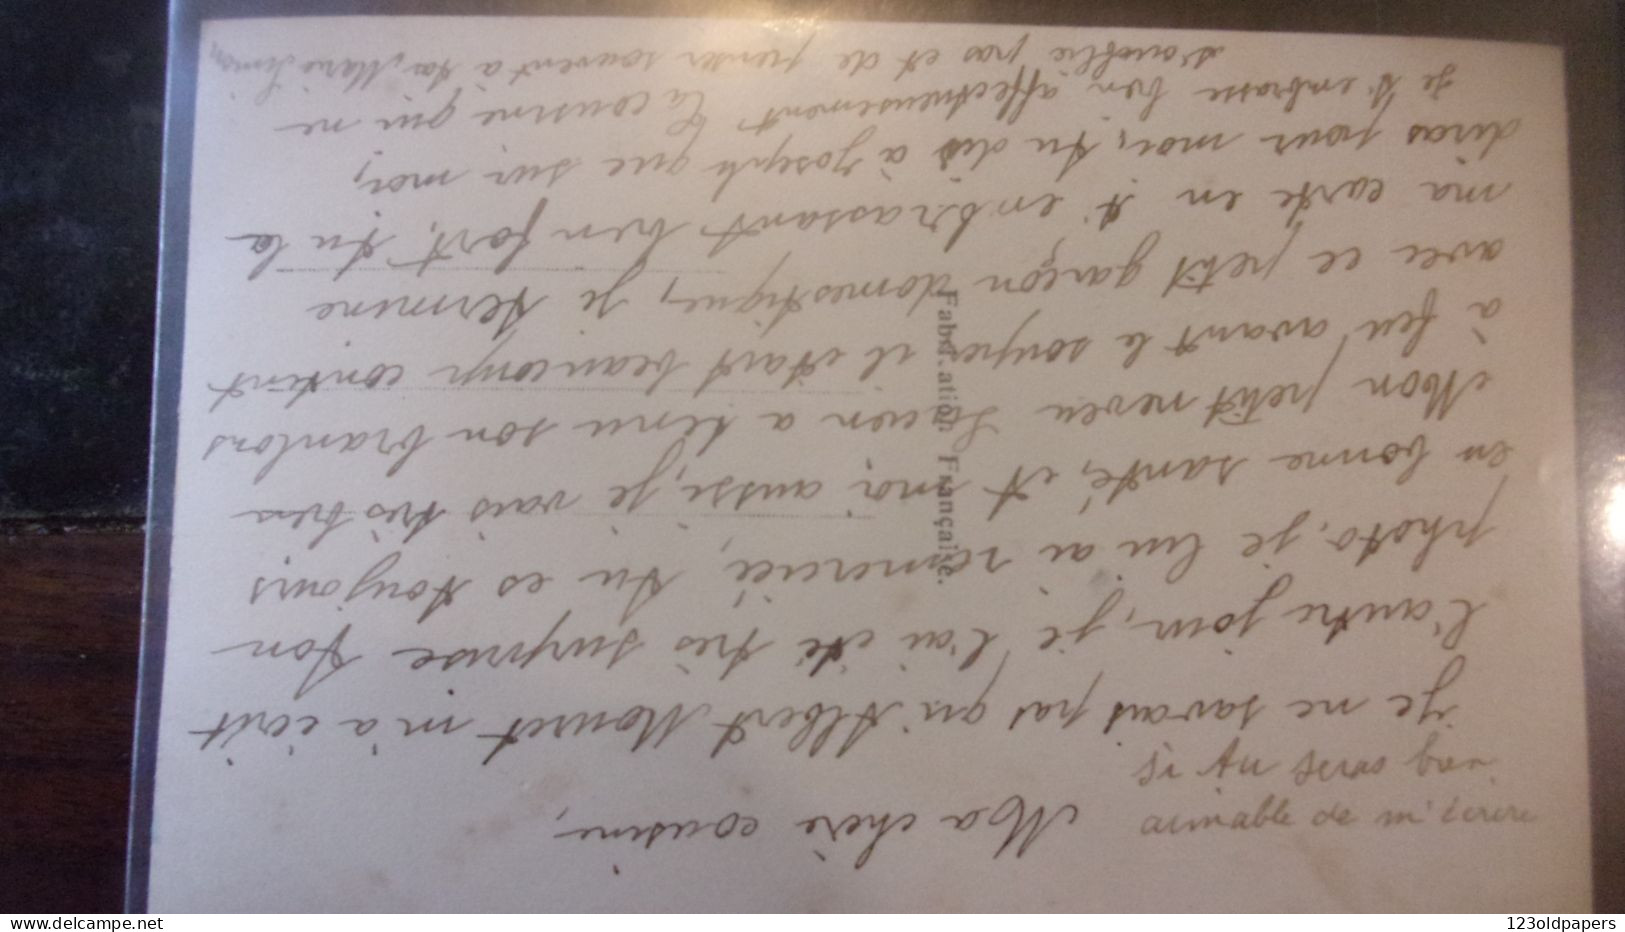 Ma chère cousine,
Je ne savais pas qu'Albert Mouret m'a écrit
l'autre jour, je l'ai été très surprise ton
photo, je lui ai remercié, tu es toujours
en bonne santé, et moi aussi, je vais très bien
Mon petit neveu Lucien a tenu son branlons
à feu avant le souper il était beaucoup content
avec ce petit garçon domestique, je termine
ma carte en t'enbrassant bien fort, tu la
diras pour moi, tu dis à Joseph que sur moi,
Je t'embrasse bien affectueusement Ta cousine qui ne
t'oublie pas et de penser souvent à ta Marie Simon
si tu seras bien
aimable de m'écrire
Fabrication Française.
123oldpapers